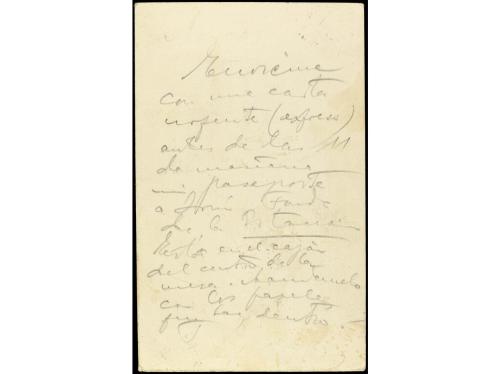 Envieme
con una carta
urgente (expreso)
antes de las 11
de mañana
mi pasaporte
a
de la
Está en el cajón
del centro de la
mesa. Mandamelo
con los papeles
que hay dentro.